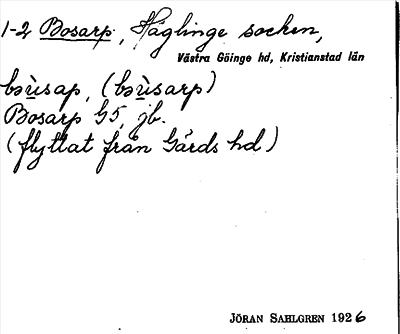 1-2 Bosarp, Häglinge socken,
Västra Göinge hd, Kristianstad län
bəùsap, (bəùsarp)
Bosarp G5, jb.
(flyttat från Gärds hd)
JÖRAN SAHLGREN 1926